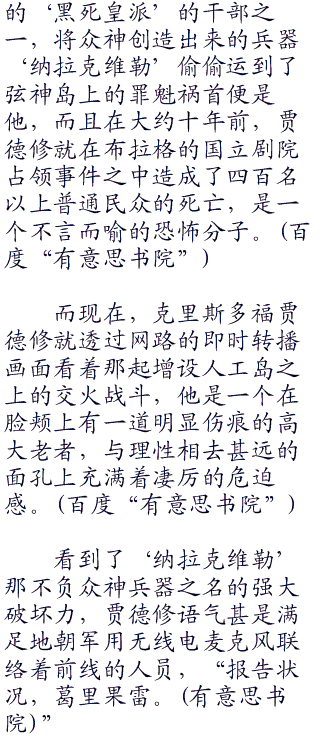 的‘黑死皇派’的干部之
一，将众神创造出来的兵器
‘纳拉克维勒’偷偷运到了
弦神岛上的罪魁祸首便是
他，而且在大约十年前，贾
德修就在布拉格的国立剧院
占领事件之中造成了四百名
以上普通民众的死亡，是一
个不言而喻的恐怖分子。(百
度“有意思书院”)
而现在，克里斯多福贾
德修就透过网路的即时转播
画面看着那起增设人工岛之
上的交火战斗，他是一个在
脸颊上有一道明显伤痕的高
大老者，与理性相去甚远的
面孔上充满着凄厉的危迫
感。(百度“有意思书院”)
看到了‘纳拉克维勒’
那不负众神兵器之名的强大
破坏力，贾德修语气甚是满
足地朝军用无线电麦克风联
络着前线的人员，“报告状
况，葛里果雷。(有意思书
院)”